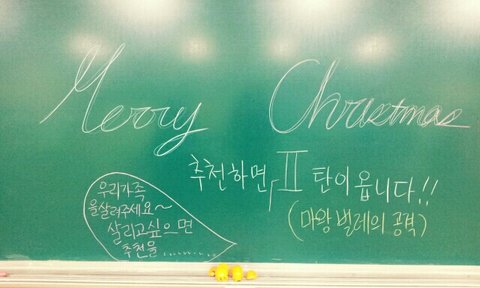 Merry Christmas
추천하면, II 탄이 옵니다!!
(마왕 벌레의 공격)
우리가족
을살려주세요~
살리고싶으면
추천을..........